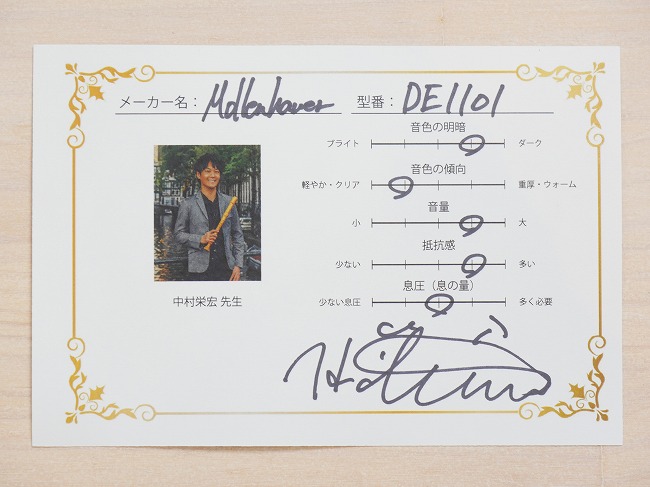 メーカー名： Mollenhauer 型番： DE1101
音色の明暗
ブライト ダーク
音色の傾向
軽やか・クリア 重厚・ウォーム
音量
小 大
抵抗感
少ない 多い
息圧（息の量）
少ない息圧 多く必要
中村栄宏 先生